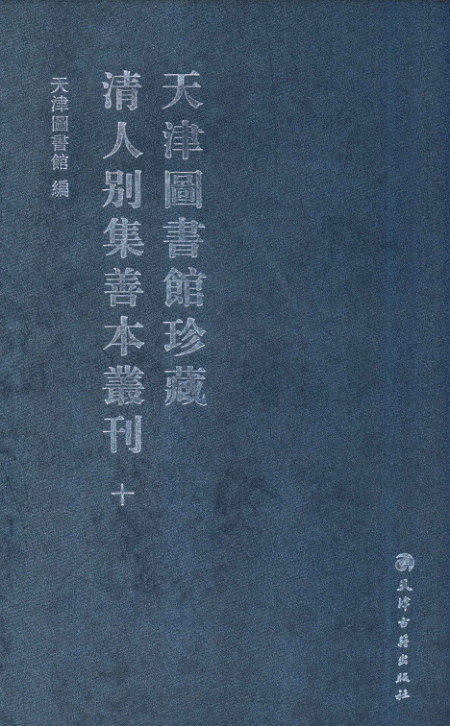 天津圖書館珍藏
清人別集善本叢刊 十
天津圖書館 編
天津古籍出版社